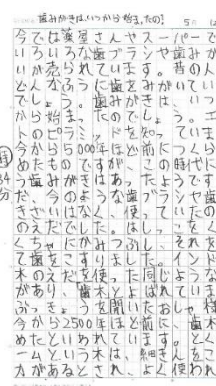 歯みがきは、いつから始まったの?
今では薬屋さんやスーパーで
いろいろな歯ブラシや歯みが
いが売られています。昔の人
どんなふうに歯をみがいてい
でしょう。歯みがきは、いつ
から始まったのでしょう。エ
トのピラミッドを知っていま
今から5000年ほど前につくら
めたものですが、この時代に
う歯みがきはあったようです
だ、今のような歯ブラシや歯
きざいはなく、使っていたの
のえだでした。はしっこをく
くちゃにかみつぶし、それを
て歯をこすりました。インド
木のえだを使った同じような
があり、歯木とよばれていま
ぶっきょうを開いたおしゃ様
今から2500年ほど前に、歯木
めたといわれています。
ームという木は、細きんをこ
力があるとされ、よく使われ